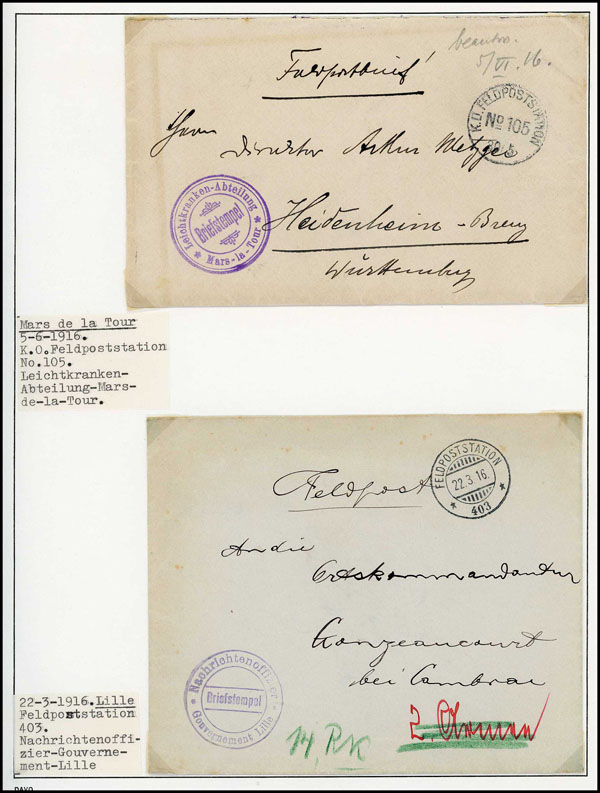 beantw.
5/VI. 16.
Feldpostbrief!
K.D. FELDPOSTSTATION
No 105
Herrn
Direktor Arthur Metzger
Leichtkranken-Abteilung
Briefstempel
* Mars-la-Tour *
Heidenheim - Brenz
Württemberg
Mars de la Tour
5-6-1916.
K.O.Feldpoststation
No.105.
Leichtkranken-
Abteilung-Mars-
de-la-Tour.
FELDPOSTSTATION
22.3.16.
* 403 *
Feldpost
An die
Ortskommandantur
Gonzeaucourt
bei Cambrai
Nachrichtenoffizier
Briefstempel
Gouvernement Lille
14. RK
2. Armee
22-3-1916.Lille
Feldpoststation
403.
Nachrichtenoffi-
zier-Gouverne-
ment-Lille
DAVO